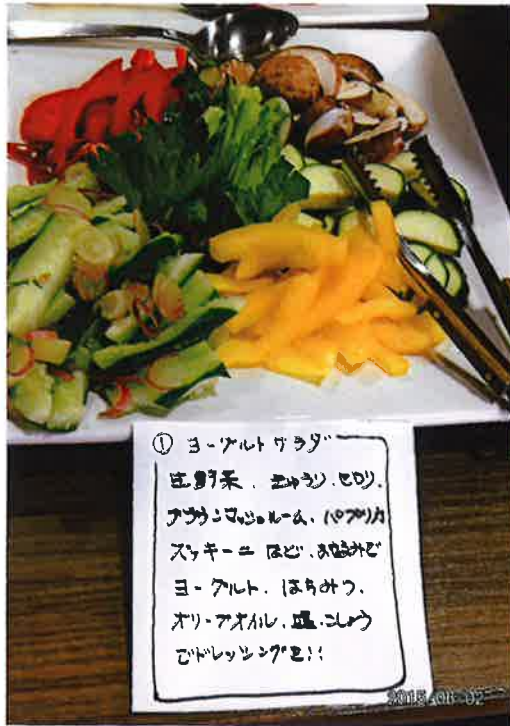 ① ヨーグルトサラダ
生野菜、きゅうり、セロリ、
ブラウンマッシュルーム、パプリカ
ズッキーニ など、お好みで
ヨーグルト、はちみつ、
オリーブオイル、塩、こしょう
でドレッシングを!!
2015/01/02